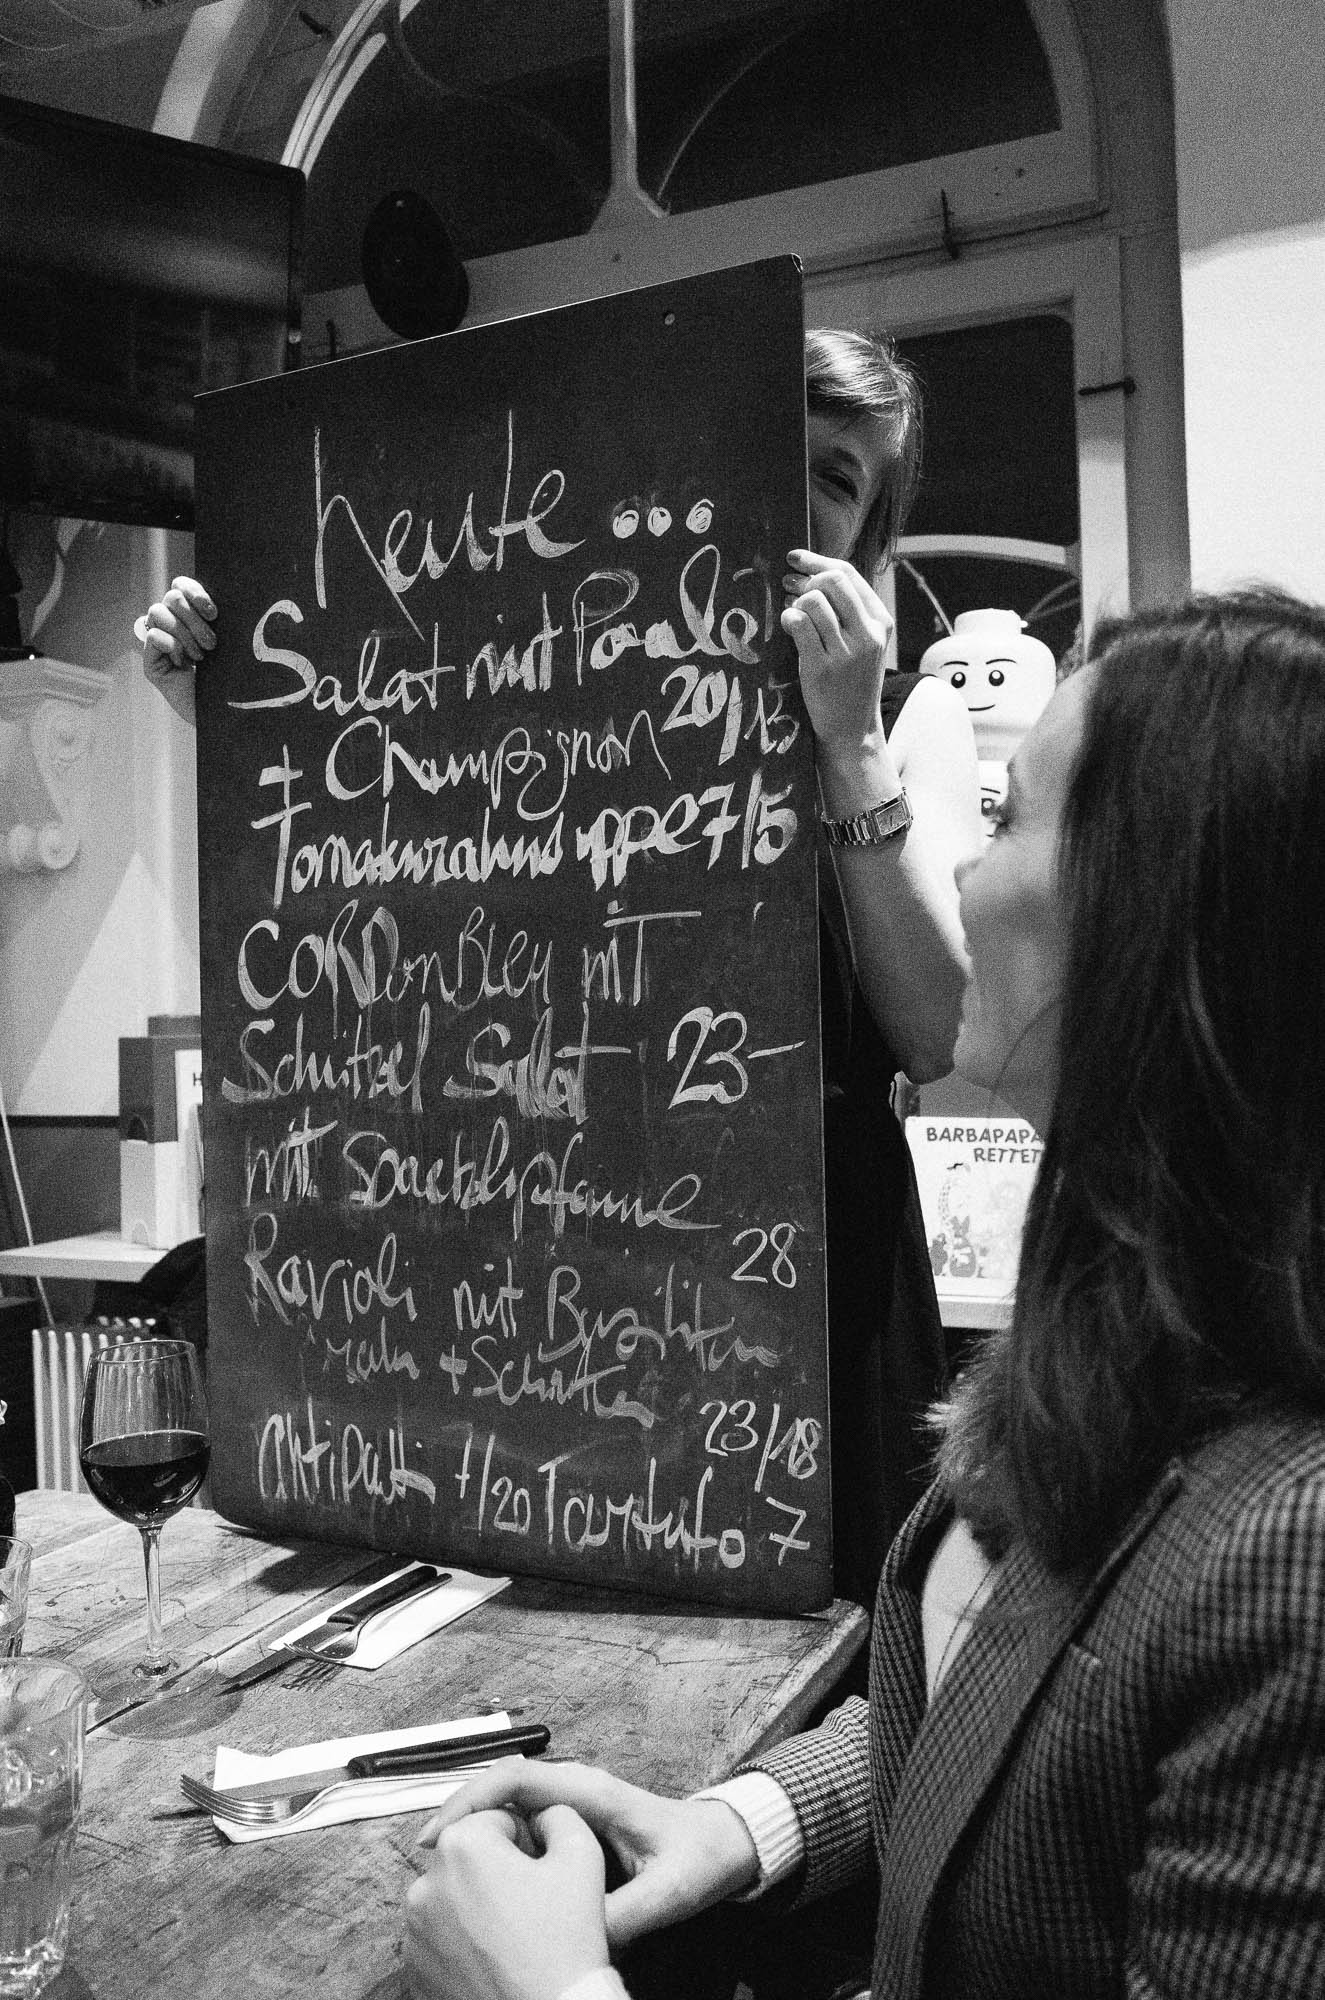 heute ...
Salat mit Poulé
20/15
+ Champignon
Tomatenrahmsuppe 7/5
CORDonBleu mit
Schnitzel Salat 23-
mit Spaetzlipfanne
28
Ravioli mit Basilikum
rahm + Schinken
23/18
antipasti 7/20 Tartufo 7
BARBAPAPA
RETTET
H